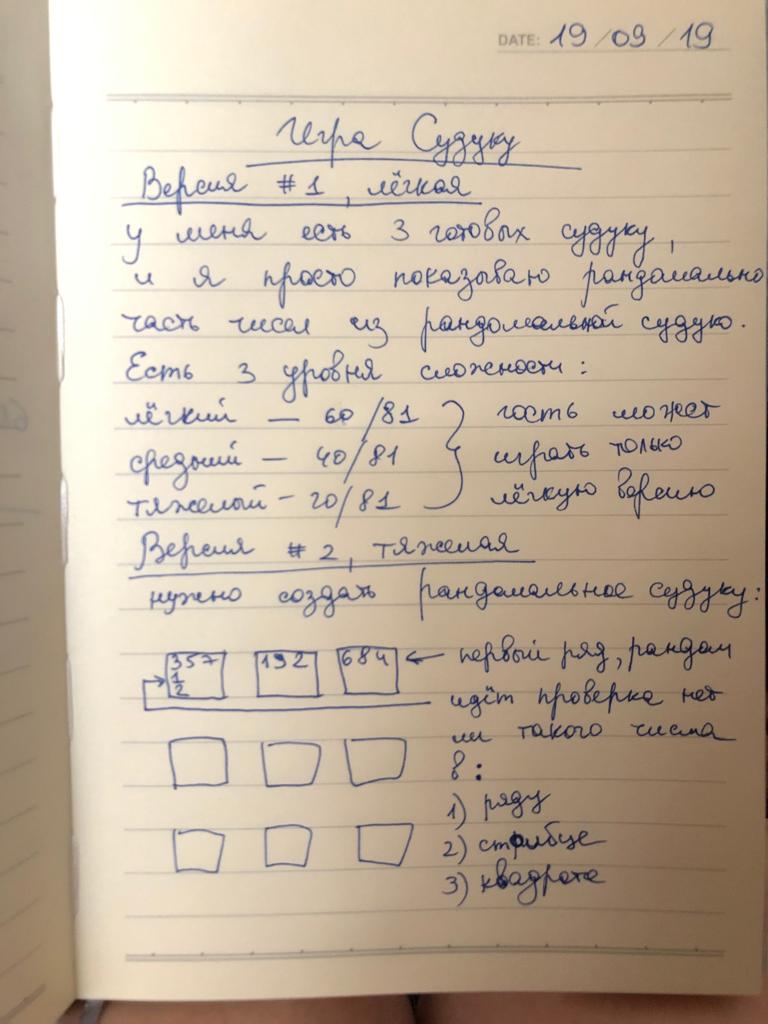 DATE: 19/09/19
Игра Судуку
Версия #1, лёгкая
у меня есть 3 готовых судуку,
и я просто показываю рандомально
часть чисел из рандомальной судуко.
Есть 3 уровня сложности:
лёгкий — 60/81 гость может
средний — 40/81 играть только
тяжелый - 20/81 лёгкую версию
Версия #2, тяжелая
нужно создать рандомальное судуку:
357 192 684 ← первый ряд, рандом
1
2
идёт проверка нет
ли такого числа
в:
1) ряду
2) столбце
3) квадрате